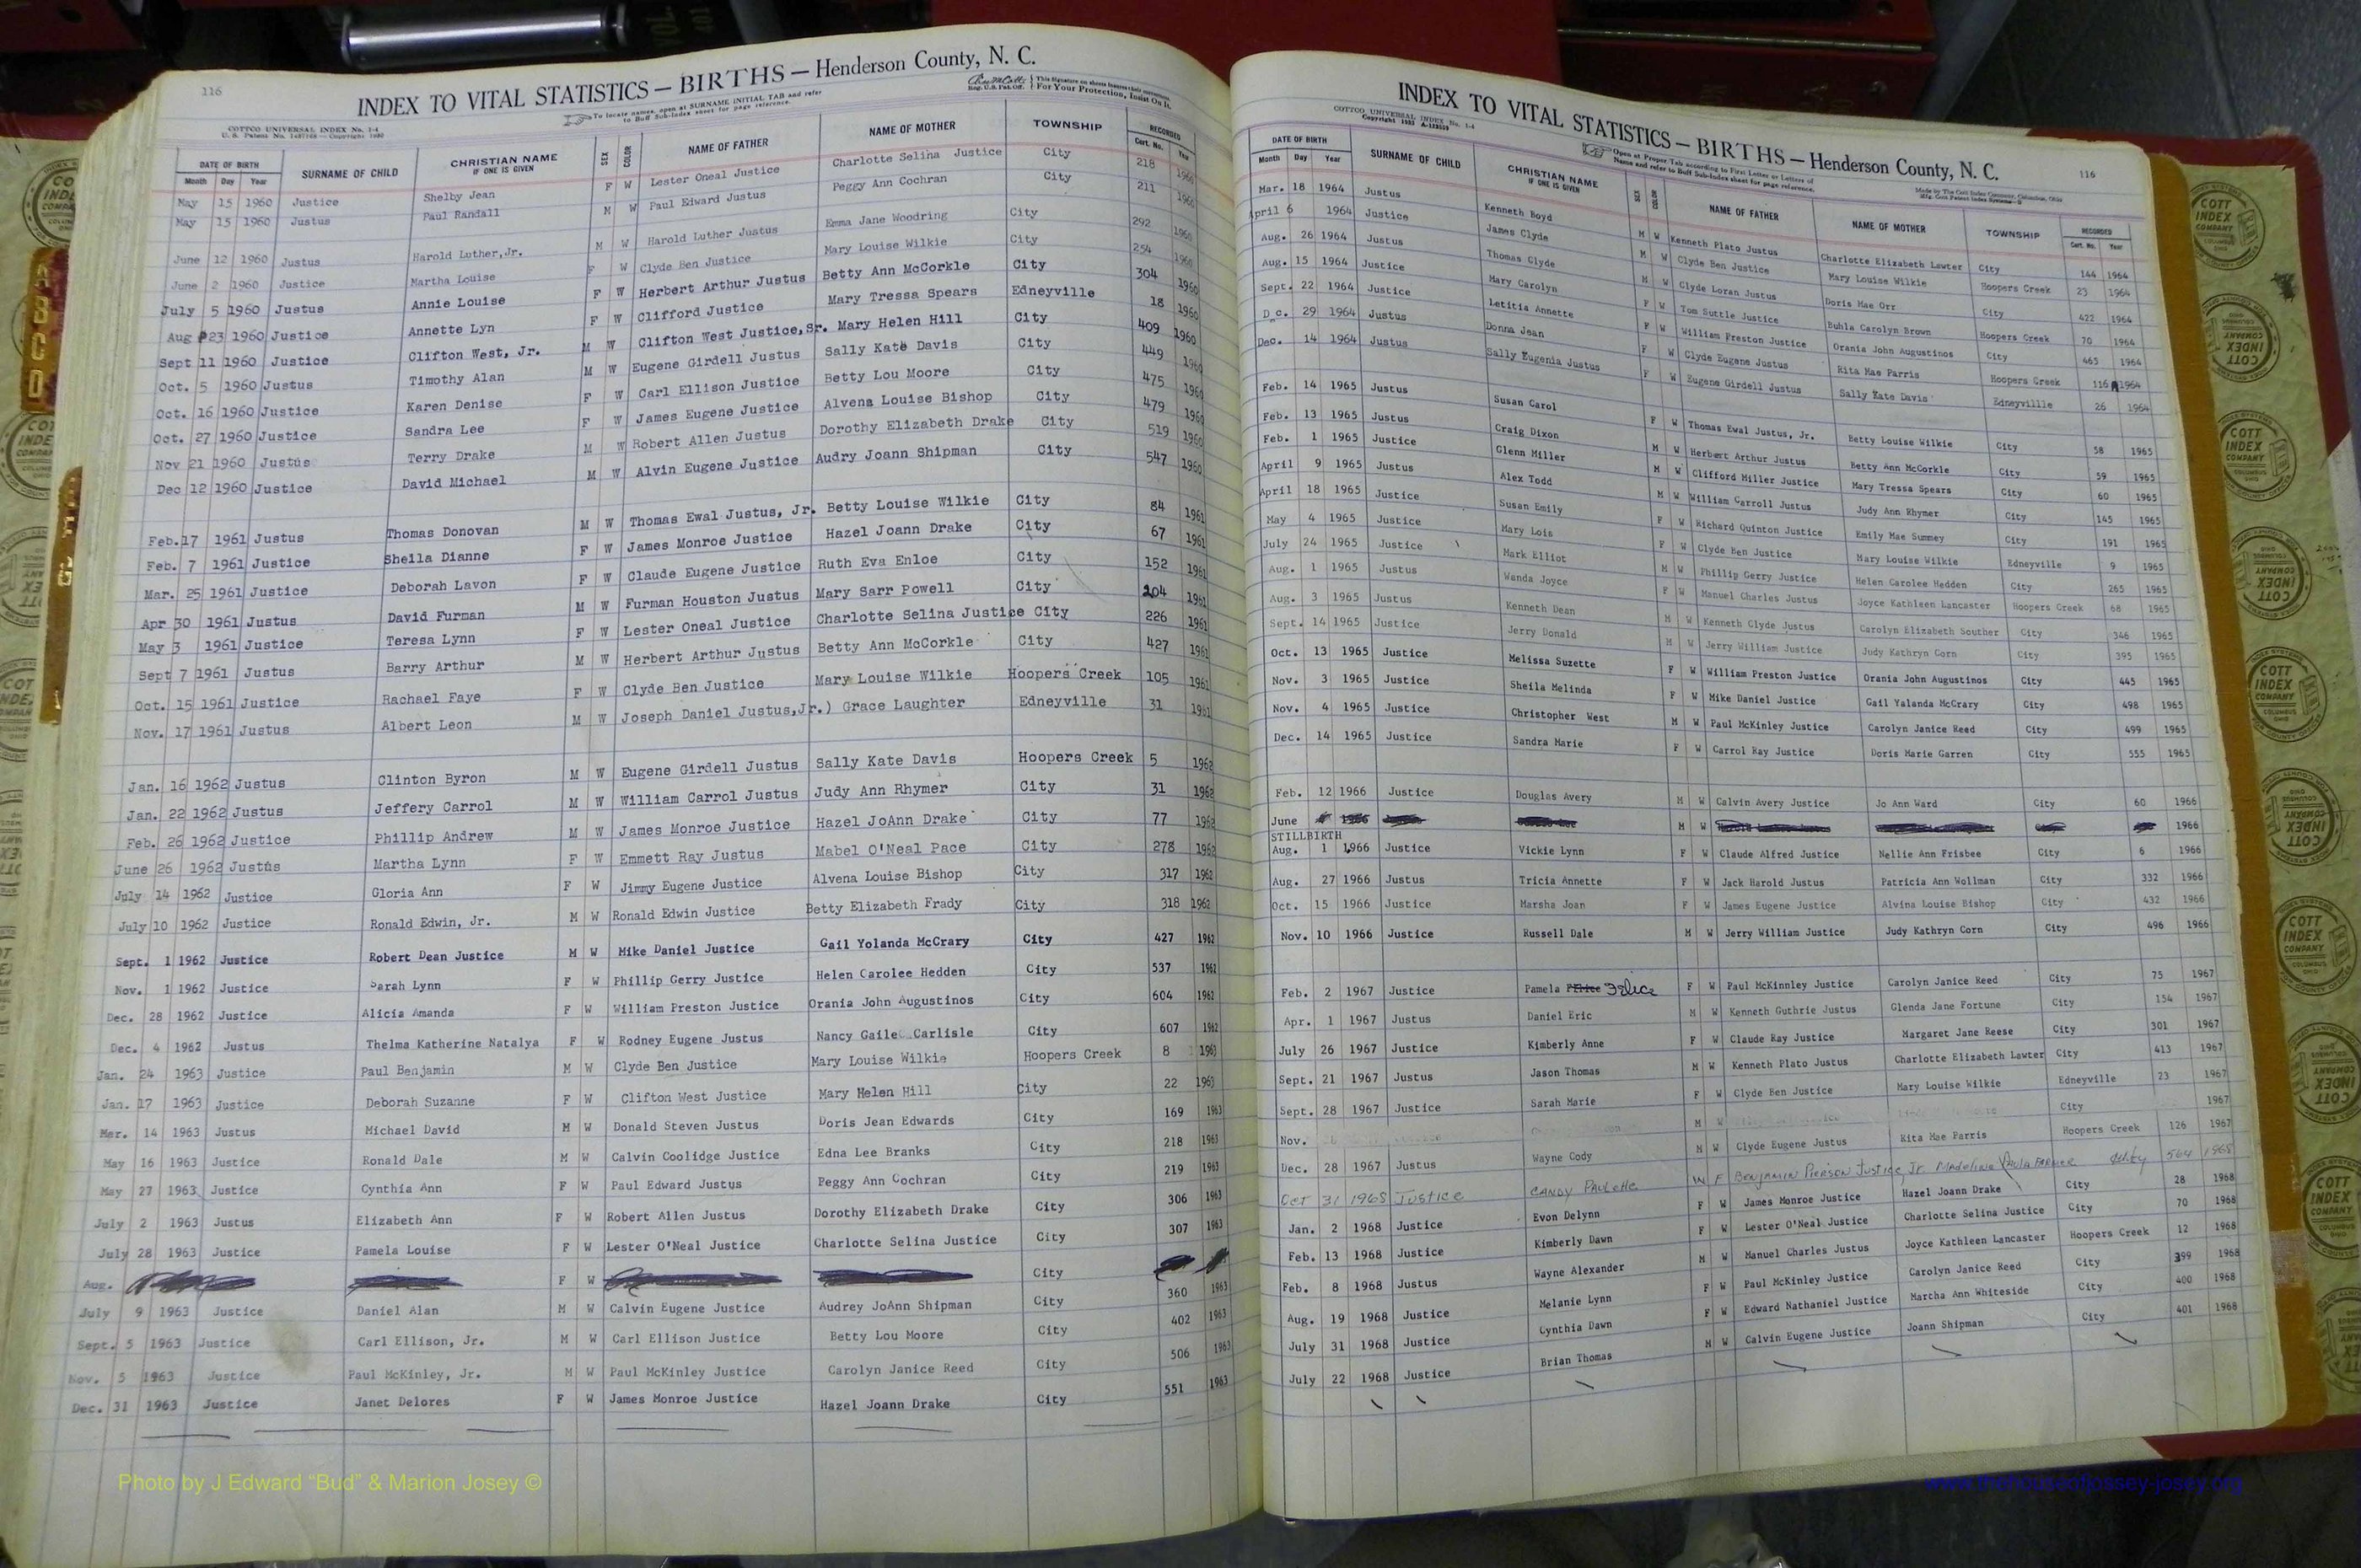 116
INDEX TO VITAL STATISTICS — BIRTHS — Henderson County, N. C.
To locate names, open at SURNAME INITIAL TAB and refer to Buff Sub-Index sheet for page reference.
Reg. U.S. Pat. Off. This Signature on sheets insures their genuineness For Your Protection, Insist On It.
COTTCO UNIVERSAL INDEX No. I-4
DATE OF BIRTH Month Day Year SURNAME OF CHILD CHRISTIAN NAME IF ONE IS GIVEN SEX COLOR NAME OF FATHER NAME OF MOTHER TOWNSHIP RECORDED Cert. No. Year
May 15 1960 Justice Shelby Jean F W Lester Oneal Justice Charlotte Selina Justice City 218 1960
May 15 1960 Justus Paul Randall M W Paul Edward Justus Peggy Ann Cochran City 211 1960
June 12 1960 Justus Harold Luther,Jr. M W Harold Luther Justus Emma Jane Woodring City 292 1960
June 2 1960 Justice Martha Louise F W Clyde Ben Justice Mary Louise Wilkie City 254 1960
July 5 1960 Justus Annie Louise F W Herbert Arthur Justus Betty Ann McCorkle City 304 1960
Aug 23 1960 Justice Annette Lyn F W Clifford Justice Mary Tressa Spears Edneyville 18 1960
Sept 11 1960 Justice Clifton West, Jr. M W Clifton West Justice,Sr. Mary Helen Hill City 409 1960
Oct. 5 1960 Justus Timothy Alan M W Eugene Girdell Justus Sally Kate Davis City 449 1960
Oct. 16 1960 Justice Karen Denise F W Carl Ellison Justice Betty Lou Moore City 475 1960
Oct. 27 1960 Justice Sandra Lee F W James Eugene Justice Alvena Louise Bishop City 479 1960
Nov 21 1960 Justus Terry Drake M W Robert Allen Justus Dorothy Elizabeth Drake City 519 1960
Dec 12 1960 Justice David Michael M W Alvin Eugene Justice Audry Joann Shipman City 547 1960
Feb.17 1961 Justus Thomas Donovan M W Thomas Ewal Justus, Jr. Betty Louise Wilkie City 84 1961
Feb. 7 1961 Justice Sheila Dianne F W James Monroe Justice Hazel Joann Drake City 67 1961
Mar. 25 1961 Justice Deborah Lavon F W Claude Eugene Justice Ruth Eva Enloe City 152 1961
Apr 30 1961 Justus David Furman M W Furman Houston Justus Mary Sarr Powell City 204 1961
May 3 1961 Justice Teresa Lynn F W Lester Oneal Justice Charlotte Selina Justice City 226 1961
Sept 7 1961 Justus Barry Arthur M W Herbert Arthur Justus Betty Ann McCorkle City 427 1961
Oct. 15 1961 Justice Rachael Faye F W Clyde Ben Justice Mary Louise Wilkie Hoopers Creek 105 1961
Nov. 17 1961 Justus Albert Leon M W Joseph Daniel Justus,Jr.) Grace Laughter Edneyville 31 1961
Jan. 16 1962 Justus Clinton Byron M W Eugene Girdell Justus Sally Kate Davis Hoopers Creek 5 1962
Jan. 22 1962 Justus Jeffery Carrol M W William Carrol Justus Judy Ann Rhymer City 31 1962
Feb. 26 1962 Justice Phillip Andrew M W James Monroe Justice Hazel JoAnn Drake City 77 1962
June 26 1962 Justus Martha Lynn F W Emmett Ray Justus Mabel O'Neal Pace City 278 1962
July 14 1962 Justice Gloria Ann F W Jimmy Eugene Justice Alvena Louise Bishop City 317 1962
July 10 1962 Justice Ronald Edwin, Jr. M W Ronald Edwin Justice Betty Elizabeth Frady City 318 1962
Sept. 1 1962 Justice Robert Dean Justice M W Mike Daniel Justice Gail Yolanda McCrary City 427 1962
Nov. 1 1962 Justice Sarah Lynn F W Phillip Gerry Justice Helen Carolee Hedden City 537 1962
Dec. 28 1962 Justice Alicia Amanda F W William Preston Justice Orania John Augustinos City 604 1962
Dec. 4 1962 Justus Thelma Katherine Natalya F W Rodney Eugene Justus Nancy Gaile Carlisle City 607 1962
Jan. 24 1963 Justice Paul Benjamin M W Clyde Ben Justice Mary Louise Wilkie Hoopers Creek 8 1963
Jan. 17 1963 Justice Deborah Suzanne F W Clifton West Justice Mary Helen Hill City 22 1963
Mar. 14 1963 Justus Michael David M W Donald Steven Justus Doris Jean Edwards City 169 1963
May 16 1963 Justice Ronald Dale M W Calvin Coolidge Justice Edna Lee Branks City 218 1963
May 27 1963 Justice Cynthia Ann F W Paul Edward Justus Peggy Ann Cochran City 219 1963
July 2 1963 Justus Elizabeth Ann F W Robert Allen Justus Dorothy Elizabeth Drake City 306 1963
July 28 1963 Justice Pamela Louise F W Lester O'Neal Justice Charlotte Selina Justice City 307 1963
Aug. F W City
July 9 1963 Justice Daniel Alan M W Calvin Eugene Justice Audrey JoAnn Shipman City 360 1963
Sept. 5 1963 Justice Carl Ellison, Jr. M W Carl Ellison Justice Betty Lou Moore City 402 1963
Nov. 5 1963 Justice Paul McKinley, Jr. M W Paul McKinley Justice Carolyn Janice Reed City 506 1963
Dec. 31 1963 Justice Janet Delores F W James Monroe Justice Hazel Joann Drake City 551 1963
Photo by J Edward “Bud” & Marion Josey ©
INDEX TO VITAL STATISTICS — BIRTHS — Henderson County, N. C.
116
COTTCO UNIVERSAL INDEX No. I-4
Open at Proper Tab according to First Letter or Letters of Name and refer to Buff Sub-Index sheet for page reference.
Made by The Cott Index Company, Columbus, Ohio
DATE OF BIRTH Month Day Year SURNAME OF CHILD CHRISTIAN NAME IF ONE IS GIVEN SEX COLOR NAME OF FATHER NAME OF MOTHER TOWNSHIP RECORDED Cert. No. Year
Mar. 18 1964 Justus Kenneth Boyd M W Kenneth Plato Justus Charlotte Elizabeth Lawter City 144 1964
April 6 1964 Justice James Clyde M W Clyde Ben Justice Mary Louise Wilkie Hoopers Creek 23 1964
Aug. 26 1964 Justus Thomas Clyde M W Clyde Loran Justus Doris Mae Orr City 422 1964
Aug. 15 1964 Justice Mary Carolyn F W Tom Suttle Justice Buhla Carolyn Brown Hoopers Creek 70 1964
Sept. 22 1964 Justice Letitia Annette F W William Preston Justice Orania John Augustinos City 465 1964
D c. 29 1964 Justus Donna Jean F W Clyde Eugene Justus Rita Mae Parris Hoopers Creek 116 1964
Dec. 14 1964 Justus Sally Eugenia Justus F W Eugene Girdell Justus Sally Kate Davis Edneyvillle 26 1964
Feb. 14 1965 Justus Susan Carol F W Thomas Ewal Justus, Jr. Betty Louise Wilkie City 58 1965
Feb. 13 1965 Justus Craig Dixon M W Herbert Arthur Justus Betty Ann McCorkle City 59 1965
Feb. 1 1965 Justice Glenn Miller M W Clifford Miller Justice Mary Tressa Spears City 60 1965
April 9 1965 Justus Alex Todd M W William Carroll Justus Judy Ann Rhymer City 145 1965
April 18 1965 Justice Susan Emily F W Richard Quinton Justice Emily Mae Summey City 191 1965
May 4 1965 Justice Mary Lois F W Clyde Ben Justice Mary Louise Wilkie Edneyville 9 1965
July 24 1965 Justice Mark Elliot M W Phillip Gerry Justice Helen Carolee Hedden City 265 1965
Aug. 1 1965 Justus Wanda Joyce F W Manuel Charles Justus Joyce Kathleen Lancaster Hoopers Creek 68 1965
Aug. 3 1965 Justus Kenneth Dean M W Kenneth Clyde Justus Carolyn Elizabeth Souther City 346 1965
Sept. 14 1965 Justice Jerry Donald M W Jerry William Justice Judy Kathryn Corn City 395 1965
Oct. 13 1965 Justice Melissa Suzette F W William Preston Justice Orania John Augustinos City 445 1965
Nov. 3 1965 Justice Sheila Melinda F W Mike Daniel Justice Gail Yalanda McCrary City 498 1965
Nov. 4 1965 Justice Christopher West M W Paul McKinley Justice Carolyn Janice Reed City 499 1965
Dec. 14 1965 Justice Sandra Marie F W Carrol Ray Justice Doris Marie Garren City 555 1965
Feb. 12 1966 Justice Douglas Avery M W Calvin Avery Justice Jo Ann Ward City 60 1966
June M W 1966
STILLBIRTH
Aug. 1 1966 Justice Vickie Lynn F W Claude Alfred Justice Nellie Ann Frisbee City 6 1966
Aug. 27 1966 Justus Tricia Annette F W Jack Harold Justus Patricia Ann Wollman City 332 1966
Oct. 15 1966 Justice Marsha Joan F W James Eugene Justice Alvina Louise Bishop City 432 1966
Nov. 10 1966 Justice Russell Dale M W Jerry William Justice Judy Kathryn Corn City 496 1966
Feb. 2 1967 Justice Pamela Felice F W Paul McKinnley Justice Carolyn Janice Reed City 75 1967
Apr. 1 1967 Justus Daniel Eric M W Kenneth Guthrie Justus Glenda Jane Fortune City 154 1967
July 26 1967 Justice Kimberly Anne F W Claude Ray Justice Margaret Jane Reese City 301 1967
Sept. 21 1967 Justus Jason Thomas M W Kenneth Plato Justus Charlotte Elizabeth Lawter City 413 1967
Sept. 28 1967 Justice Sarah Marie F W Clyde Ben Justice Mary Louise Wilkie Edneyville 23 1967
Nov. M W City 1967
Dec. 28 1967 Justus Wayne Cody M W Clyde Eugene Justus Rita Mae Parris Hoopers Creek 126 1967
Oct 31 1968 Justice CANDY PAulette W F BENJAMIN PIERSON Justice, Jr. Madeline Paula FARMER City 564 1968
Jan. 2 1968 Justice Evon Delynn F W James Monroe Justice Hazel Joann Drake City 28 1968
Feb. 13 1968 Justice Kimberly Dawn F W Lester O'Neal Justice Charlotte Selina Justice City 70 1968
Feb. 8 1968 Justus Wayne Alexander M W Manuel Charles Justus Joyce Kathleen Lancaster Hoopers Creek 12 1968
Aug. 19 1968 Justice Melanie Lynn F W Paul McKinley Justice Carolyn Janice Reed City 399 1968
July 31 1968 Justice Cynthia Dawn F W Edward Nathaniel Justice Martha Ann Whiteside City 400 1968
July 22 1968 Justice Brian Thomas M W Calvin Eugene Justice Joann Shipman City 401 1968
www.thehouseofjossey-josey.org
COTT INDEX COMPANY COLUMBUS OHIO